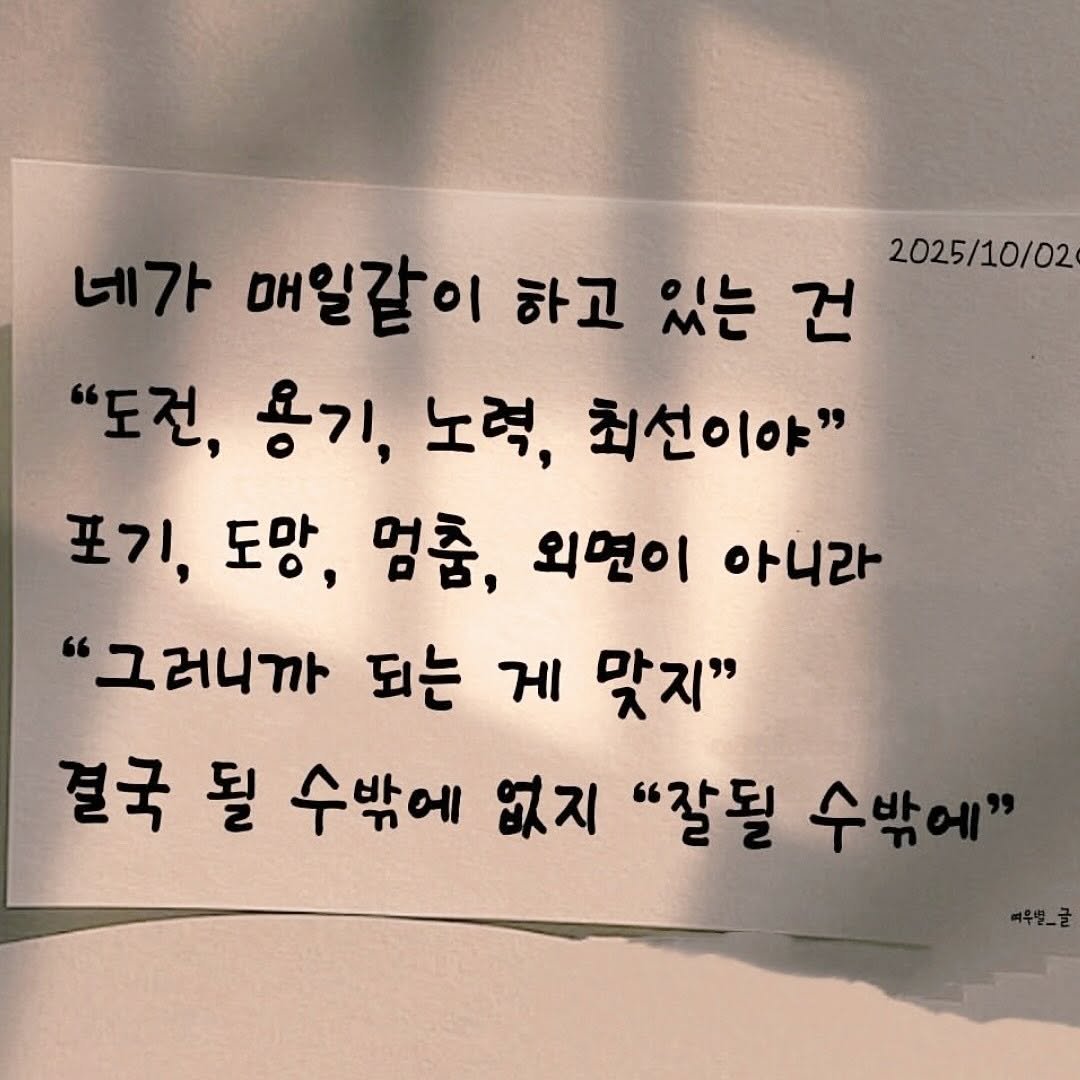 2025/10/02
네가 매일같이 하고 있는 건
“도전, 용기, 노력, 최선이야”
포기, 도망, 멈춤, 외면이 아니라
“그러니까 되는 게 맞지”
결국 될 수밖에 없지 “잘될 수밖에”
여우별_글